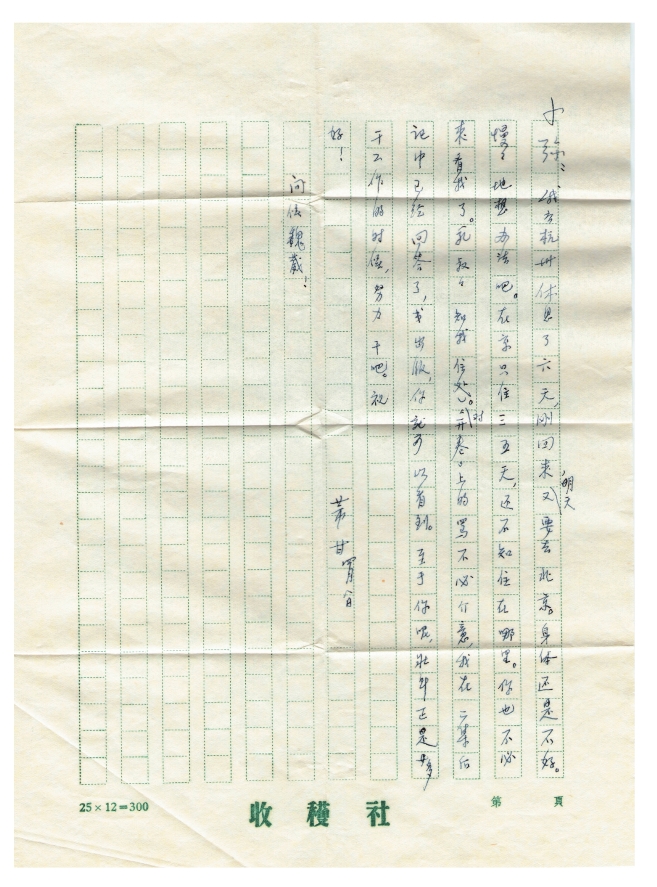 小弥：我去杭州休息了六天，刚回来，明天又要去北京。身体还是不好。
慢慢地想办法吧。在京只住三五天，还不知住在哪里。你也不必
来看我了。孔叔叔知我住处。对《开卷》上的骂不必介意，我在二集后
记中已经回答了，书出版，你就可以看到。至于你呢，壮年正是多
干工作的时候，努力干吧。祝
好！
芾甘 四月八日
问候魏葳！
25×12=300
收穫社
第 頁